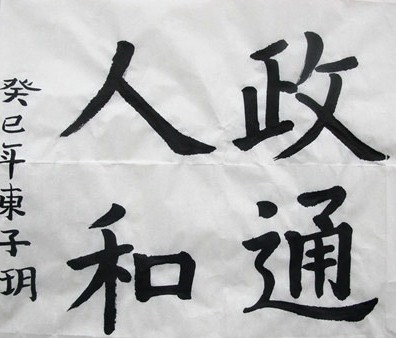 政通
人和
癸巳年東子玥